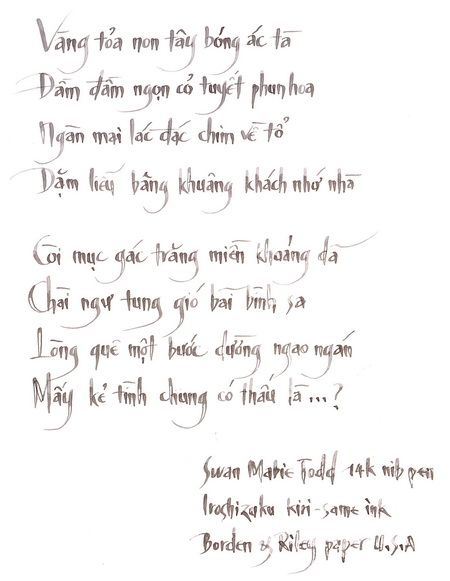 Vàng tỏa non tây bóng ác tà
Dầm đầm ngọn cỏ tuyết phun hoa
Ngàn mai lác đác chim về tổ
Dặm liễu bâng khuâng khách nhớ nhà
Còi mục gác trăng miền khoảng dã
Chài ngư tung gió bãi bình sa
Lòng quê một bước dường ngao ngán
Mấy kẻ tình chung có thấu là...?
Swan Mabie Todd 14k nib pen
Iroshizuku kiri-same ink
Borden & Riley paper U.S.A